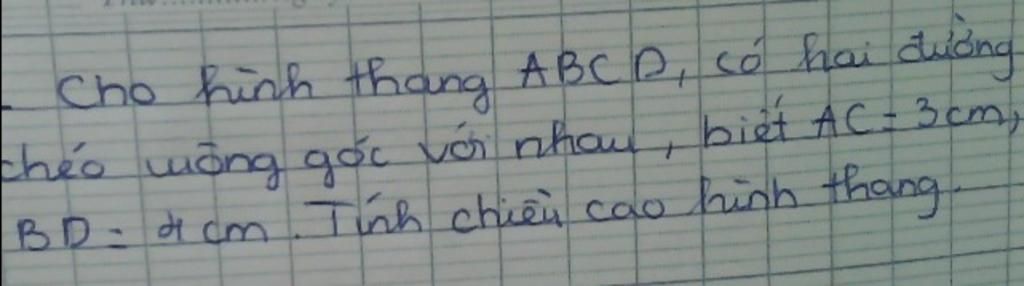 - Cho hình thang ABCD, có hai đường
chéo vuông góc với nhau, biết AC = 3cm,
BD = 4 cm. Tính chiều cao hình thang.